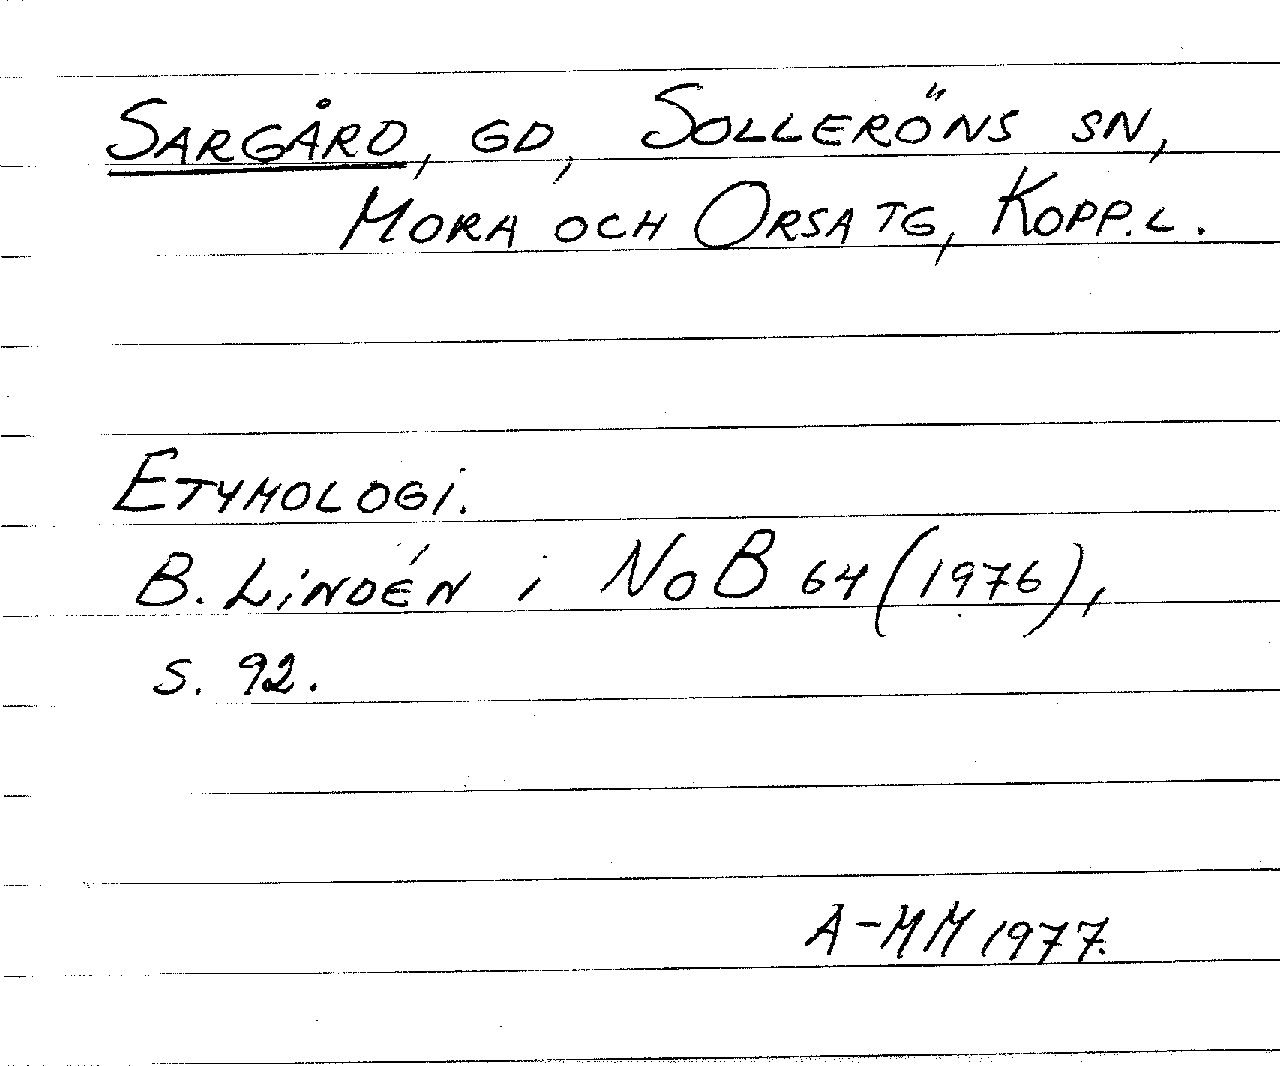 SARGÅRD, GD, SOLLERÖNS SN,
MORA OCH ORSA TG, KOPP.L.
ETYMOLOGI.
B. LINDÉN i NoB 64 (1976),
S. 92.
A-MM 1977.